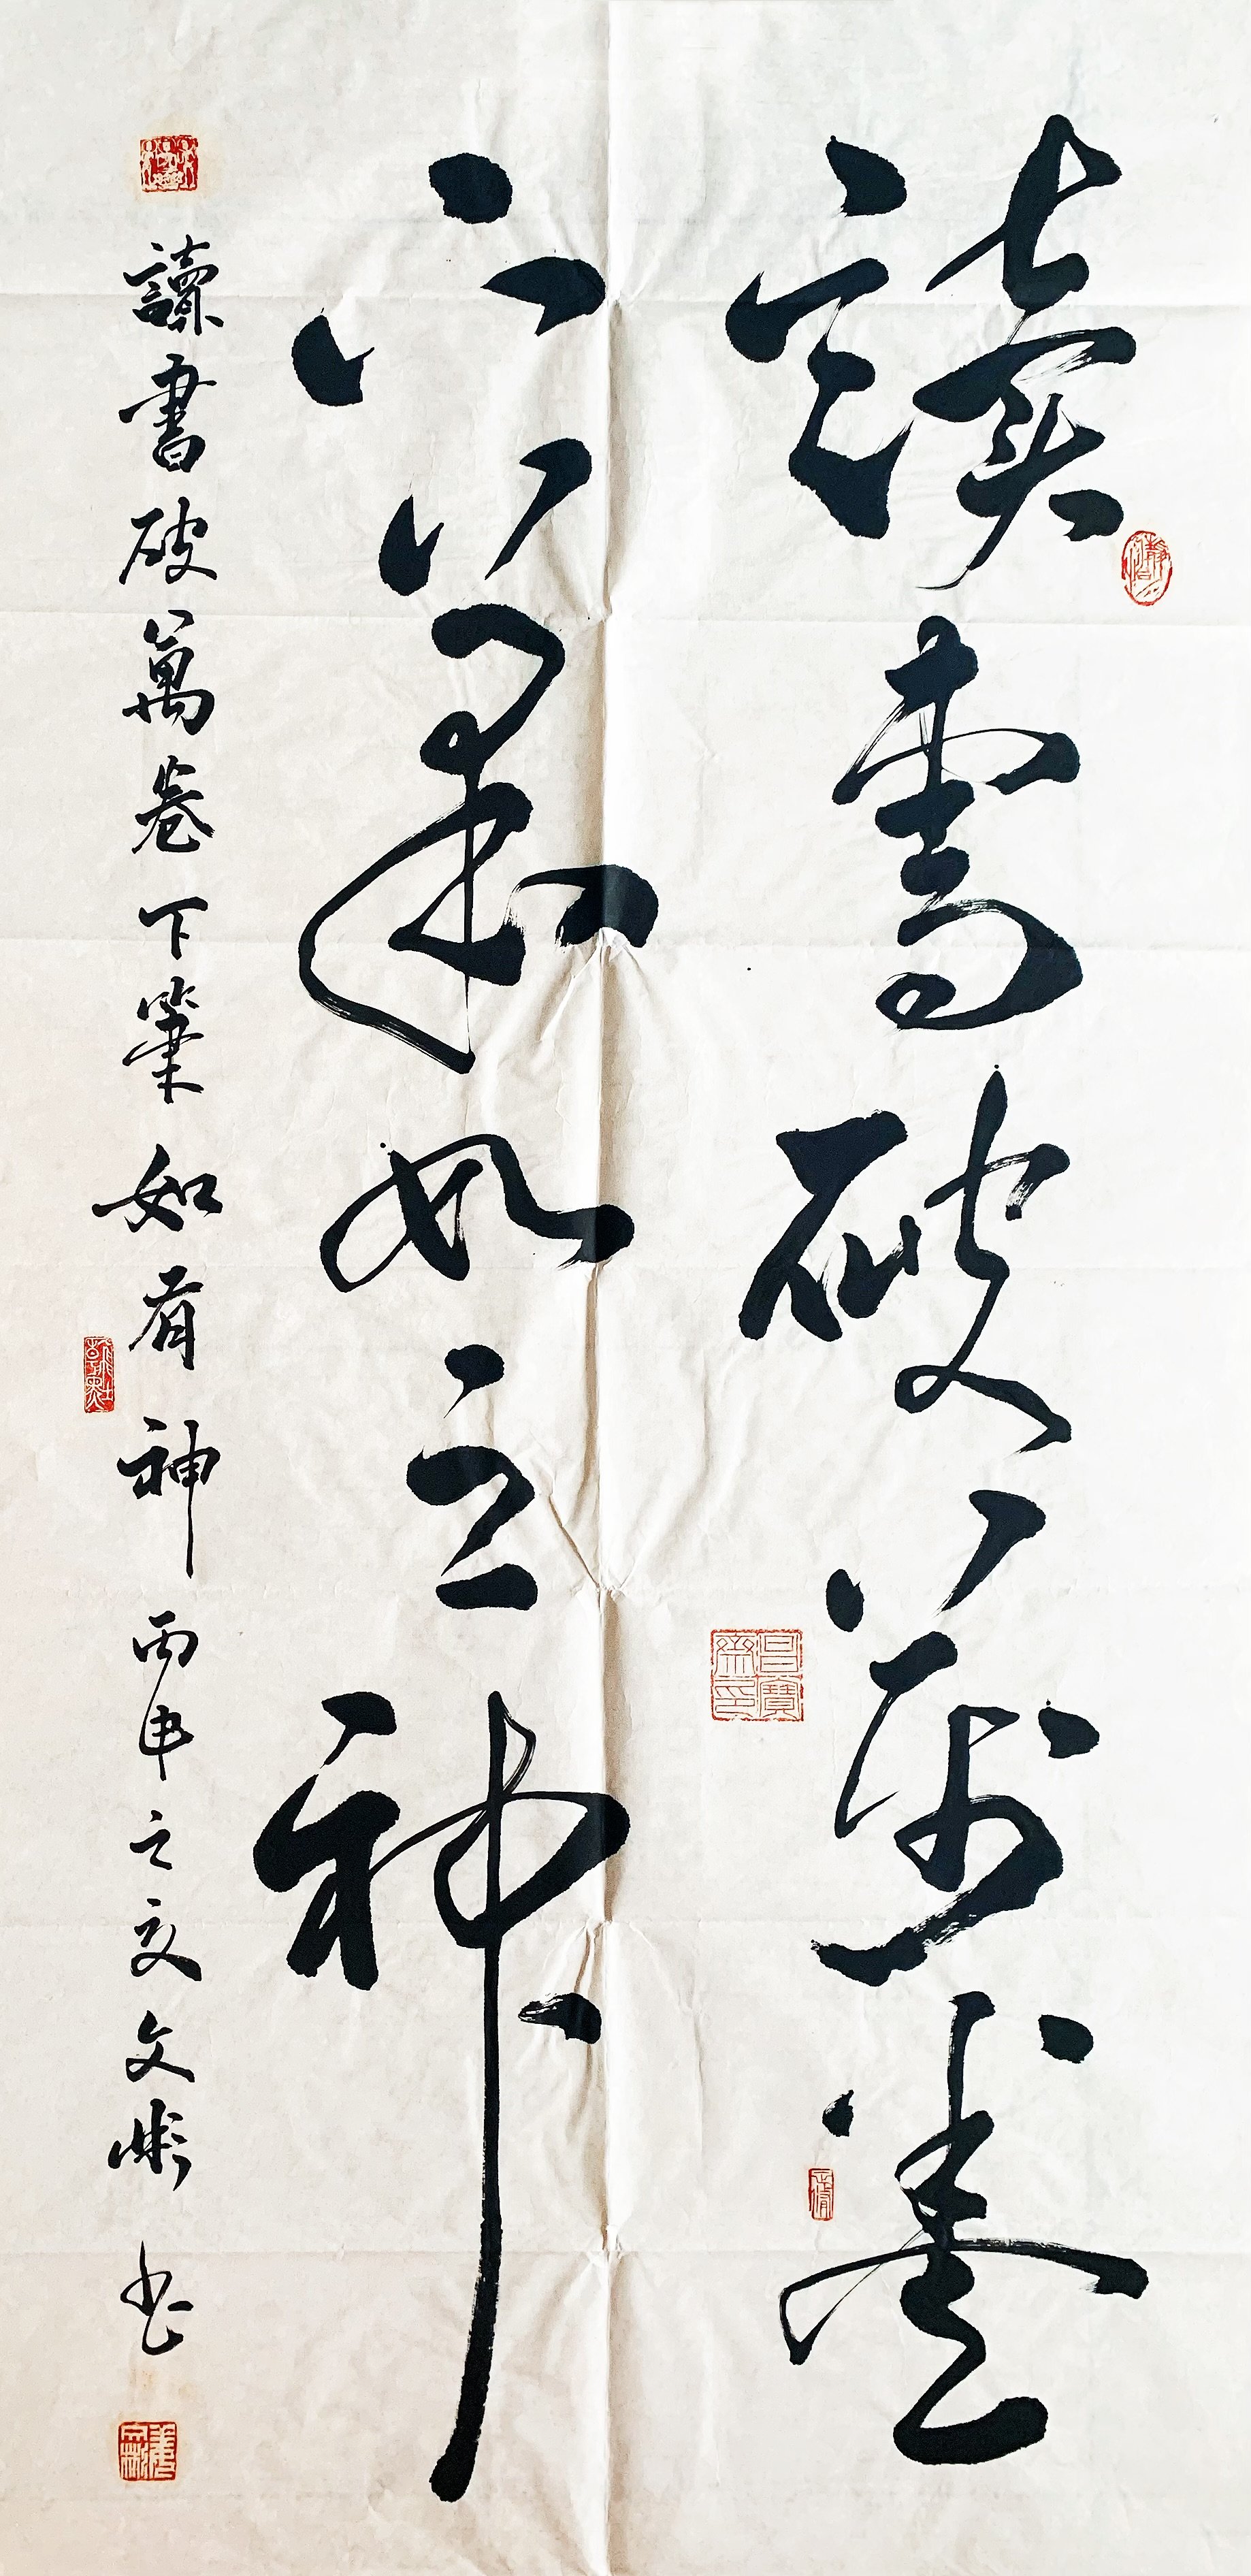 讀書破萬卷
下筆如有神
讀書破萬卷下筆如有神丙申之夏文彬书